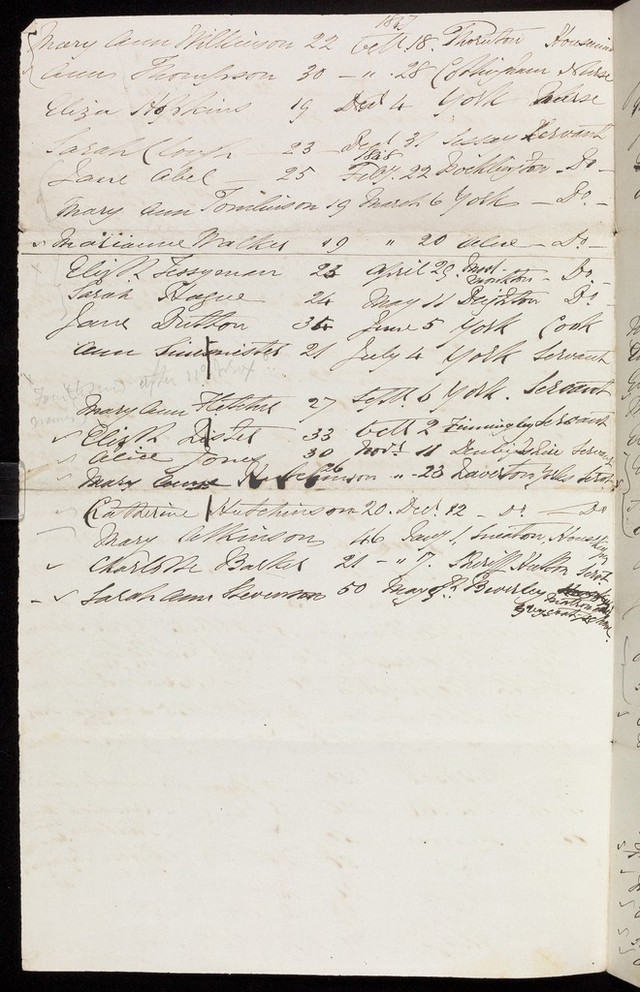 1847
Mary Ann Wilkinson 22 Octr 18. Thornton Housemaid
Ann Thompson 30 - " - 28 Cottingham Nurse
Eliza Hopkins 19 Decr 4 York Nurse
Sarah Clough - 23 - Decr 31 Sessay Servant
1848
Jane Abel - 25 Feby. 22 Pocklington - Do -
Mary Ann Tomlinson 19 March 6 York - Do. -
Marianne Walker 19 " 20 Alne - Do -
Elizth Tessyman 23 April 29 Moor Monkton - Do -
Sarah Hague 24 May 11 Deighton Do -
Jane Dutton 34 June 5 York Cook
Ann Simmister 21 July 4 York Servant
after 11
Mary Ann Fletcher 27 Septr. 6 York. Servant
Elizth Lister 33 Octr 2 Finningley Servant
Alice Jones 30 Novr 11 Denbyshire Servant
Mary Hutchinson " - 23 Yorks Servt
Catherine Hutchinson 20. Decr. 12 - Do - Do
Mary Atkinson 46 Jany 1, Sneaton,
Charlotte Barker 21 - " 7. Sheriff Hutton Servt
Sarah Ann Stevenson 50 May Beverley
Matron
Grey Coat School